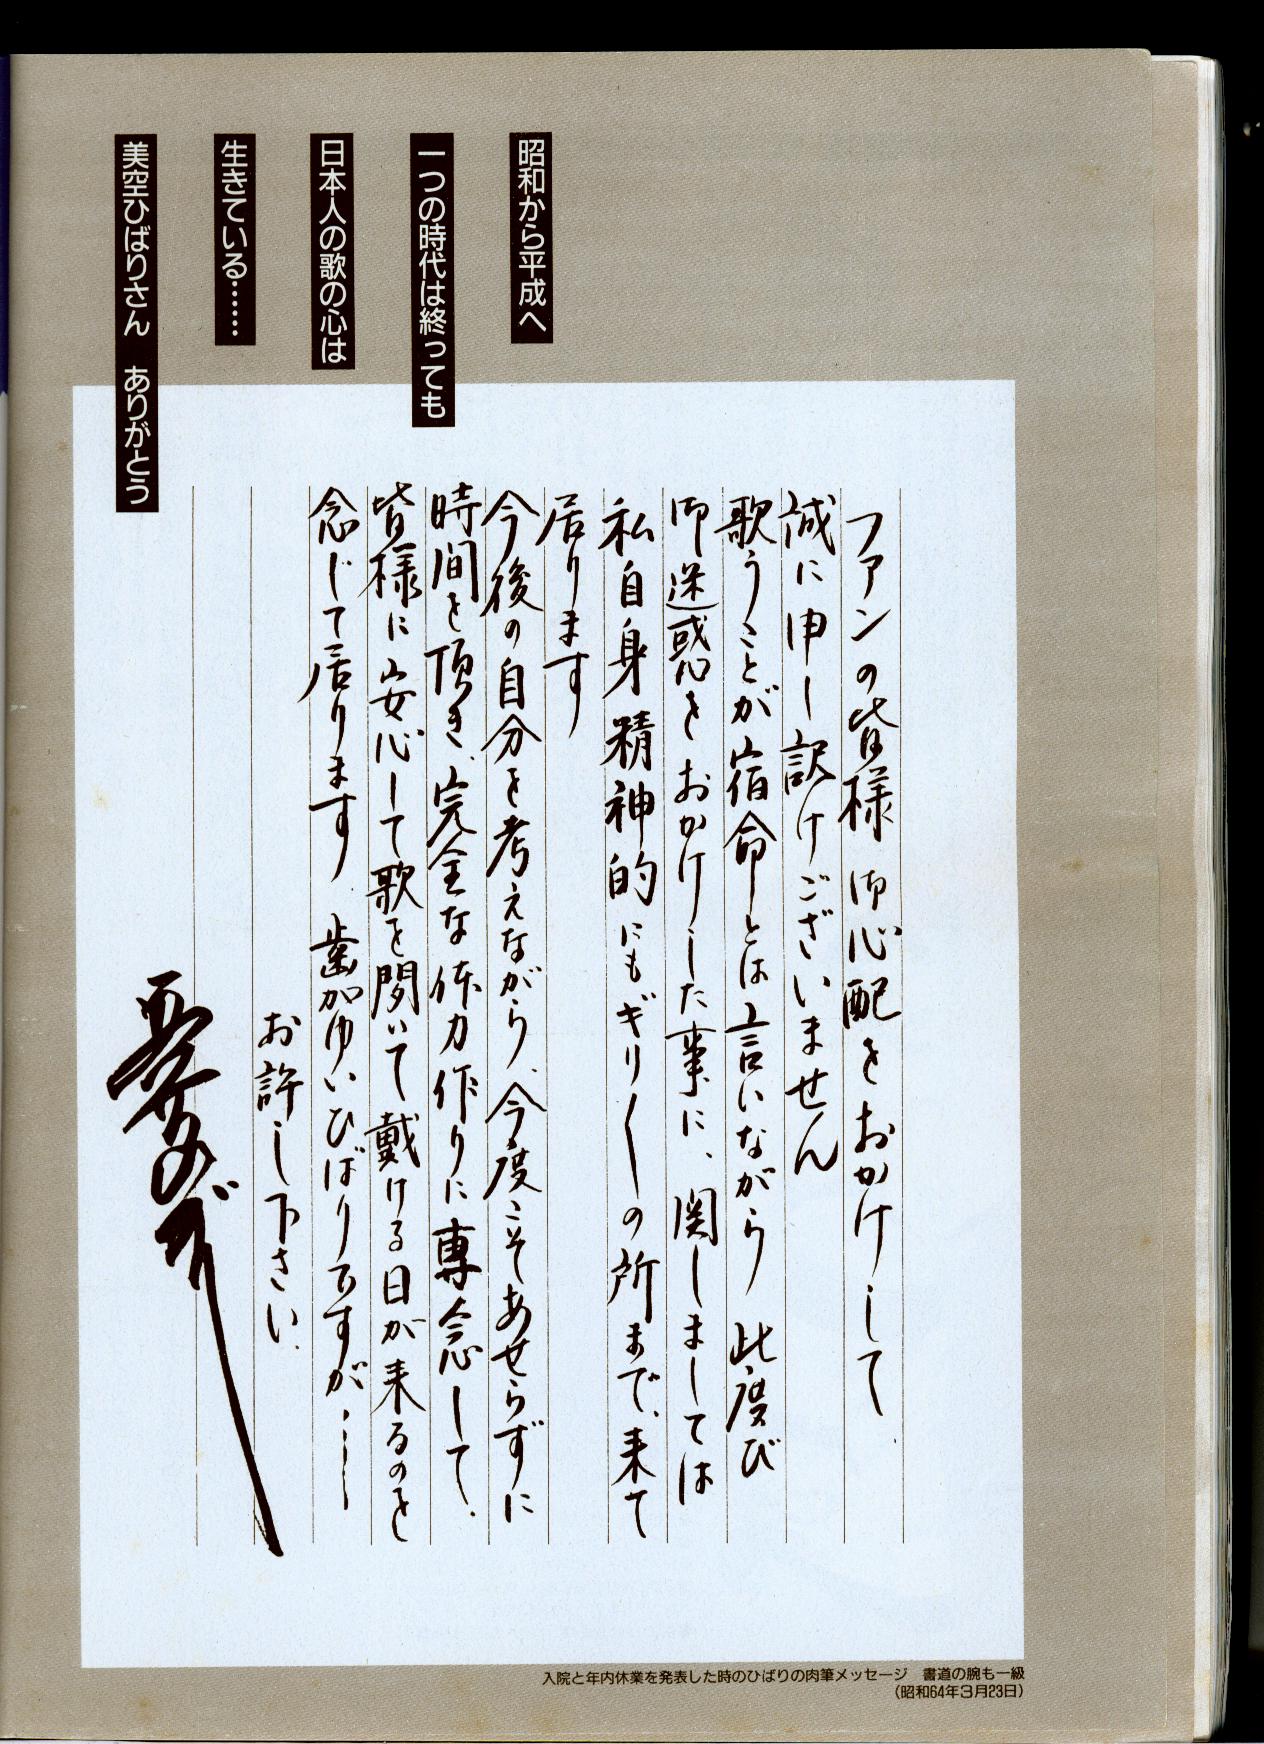 昭和から平成へ
一つの時代は終っても
日本人の歌の心は
生きている……
美空ひばりさん　ありがとう
ファンの皆様 御心配をおかけして
誠に申し訳けございません
歌うことが宿命とは言いながら 此度び
御迷惑をおかけした事に、関しましては
私自身精神的にもギリ〱の所まで、来て
居ります
今後の自分を考えながら、今度こそあせらずに
時間を頂き、完全な体力作りに専念して、
皆様に安心して歌を聞いて戴ける日が来るのを
念じて居ります 歯がゆいひばりですが……
お許し下さい、
美空ひばり
入院と年内休業を発表した時のひばりの肉筆メッセージ　書道の腕も一級
（昭和64年3月23日）